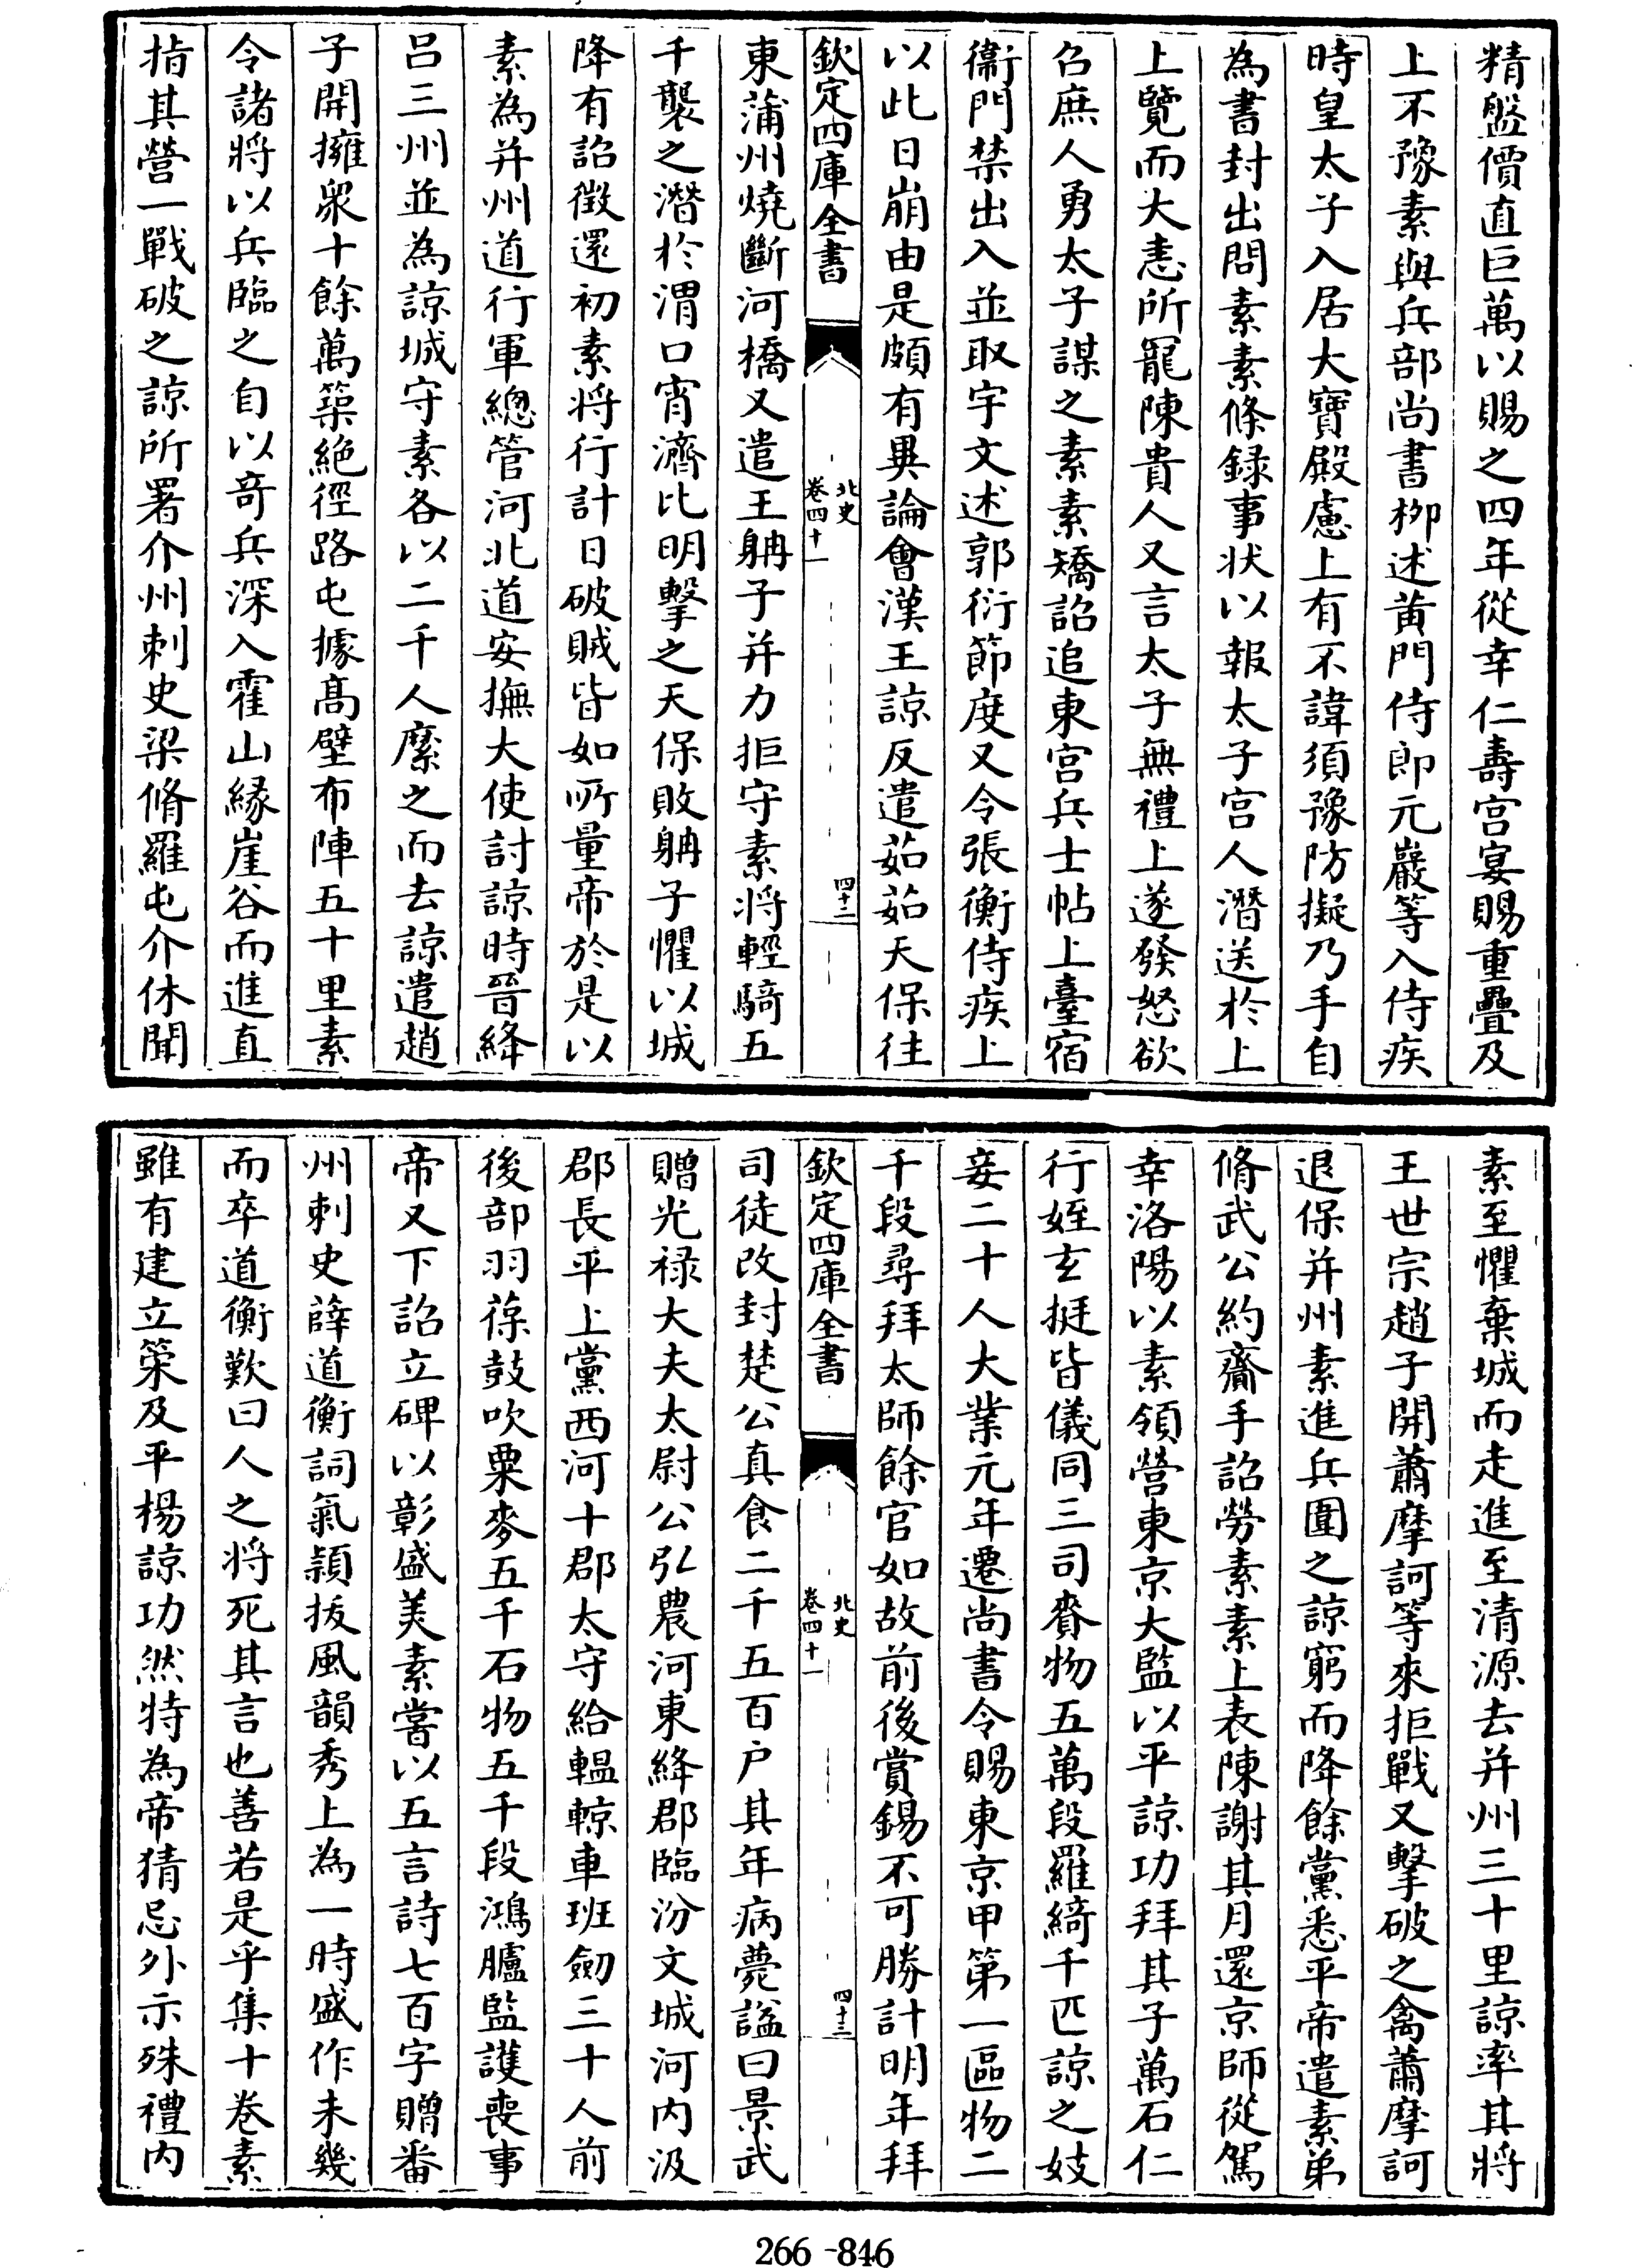 精盤價直巨萬以賜之四年從幸仁壽宫宴賜重疊及
上不豫素與兵部尚書栁述黄門侍郎元巖等入侍疾
時皇太子入居大寶殿慮上有不諱須豫防擬乃手自
為書封出問素素條録事状以報太子宫人潛送於上
上覽而大恚所寵陳貴人又言太子無禮上遂發怒欲
召庶人勇太子謀之素素矯詔追東宫兵士帖上臺宿
衞門禁出入並取宇文述郭衍節度又令張衡侍疾上
以此日崩由是頗有異論會漢王諒反遣茹茹天保往
欽定四庫全書
北史
卷四十一
四十二
東蒲州燒斷河橋又遣王𦕈子并力拒守素將輕騎五
千襲之潛於渭口宵濟比明擊之天保敗𦕈子懼以城
降有詔徵還初素將行計日破賊皆如所量帝於是以
素為并州道行軍總管河北道安撫大使討諒時晉絳
吕三州並為諒城守素各以二千人縻之而去諒遣趙
子開擁衆十餘萬築絶徑路屯據髙壁布陣五十里素
令諸將以兵臨之自以竒兵深入霍山緣崖谷而進直
指其營一戰破之諒所署介州刺史梁脩羅屯介休聞
素至懼棄城而走進至清源去并州三十里諒率其將
王世宗趙子開蕭摩訶等來拒戰又擊破之禽蕭摩訶
退保并州素進兵圍之諒窮而降餘黨悉平帝遣素弟
脩武公約齎手詔勞素素上表陳謝其月還京師從駕
幸洛陽以素領營東京大監以平諒功拜其子萬石仁
行姪玄挺皆儀同三司賚物五萬段羅綺千匹諒之妓
妾二十人大業元年遷尚書令賜東京甲第一區物二
千段尋拜太師餘官如故前後賞錫不可勝計明年拜
欽定四庫全書
北史
卷四十一
四十三
司徒改封楚公真食二千五百户其年病薨謚曰景武
贈光禄大夫太尉公弘農河東絳郡臨汾文城河内汲
郡長平上黨西河十郡太守給轀輬車班劒三十人前
後部羽葆鼓吹粟麥五千石物五千段鴻臚監護喪事
帝又下詔立碑以彰盛美素嘗以五言詩七百字贈番
州刺史薛道衡詞氣頴拔風韻秀上為一時盛作未幾
而卒道衡歎曰人之將死其言也善若是乎集十卷素
雖有建立策及平楊諒功然特為帝猜忌外示殊禮内
266-846